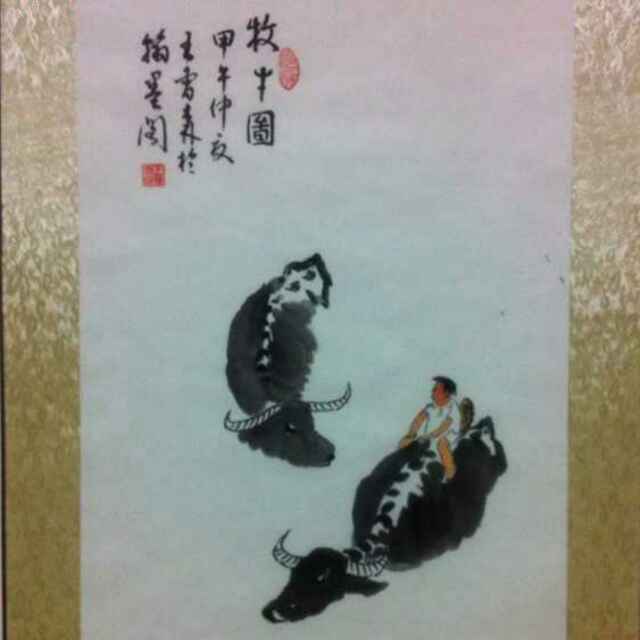 牧牛圖
甲午仲夏
王雪森於
翰墨阁